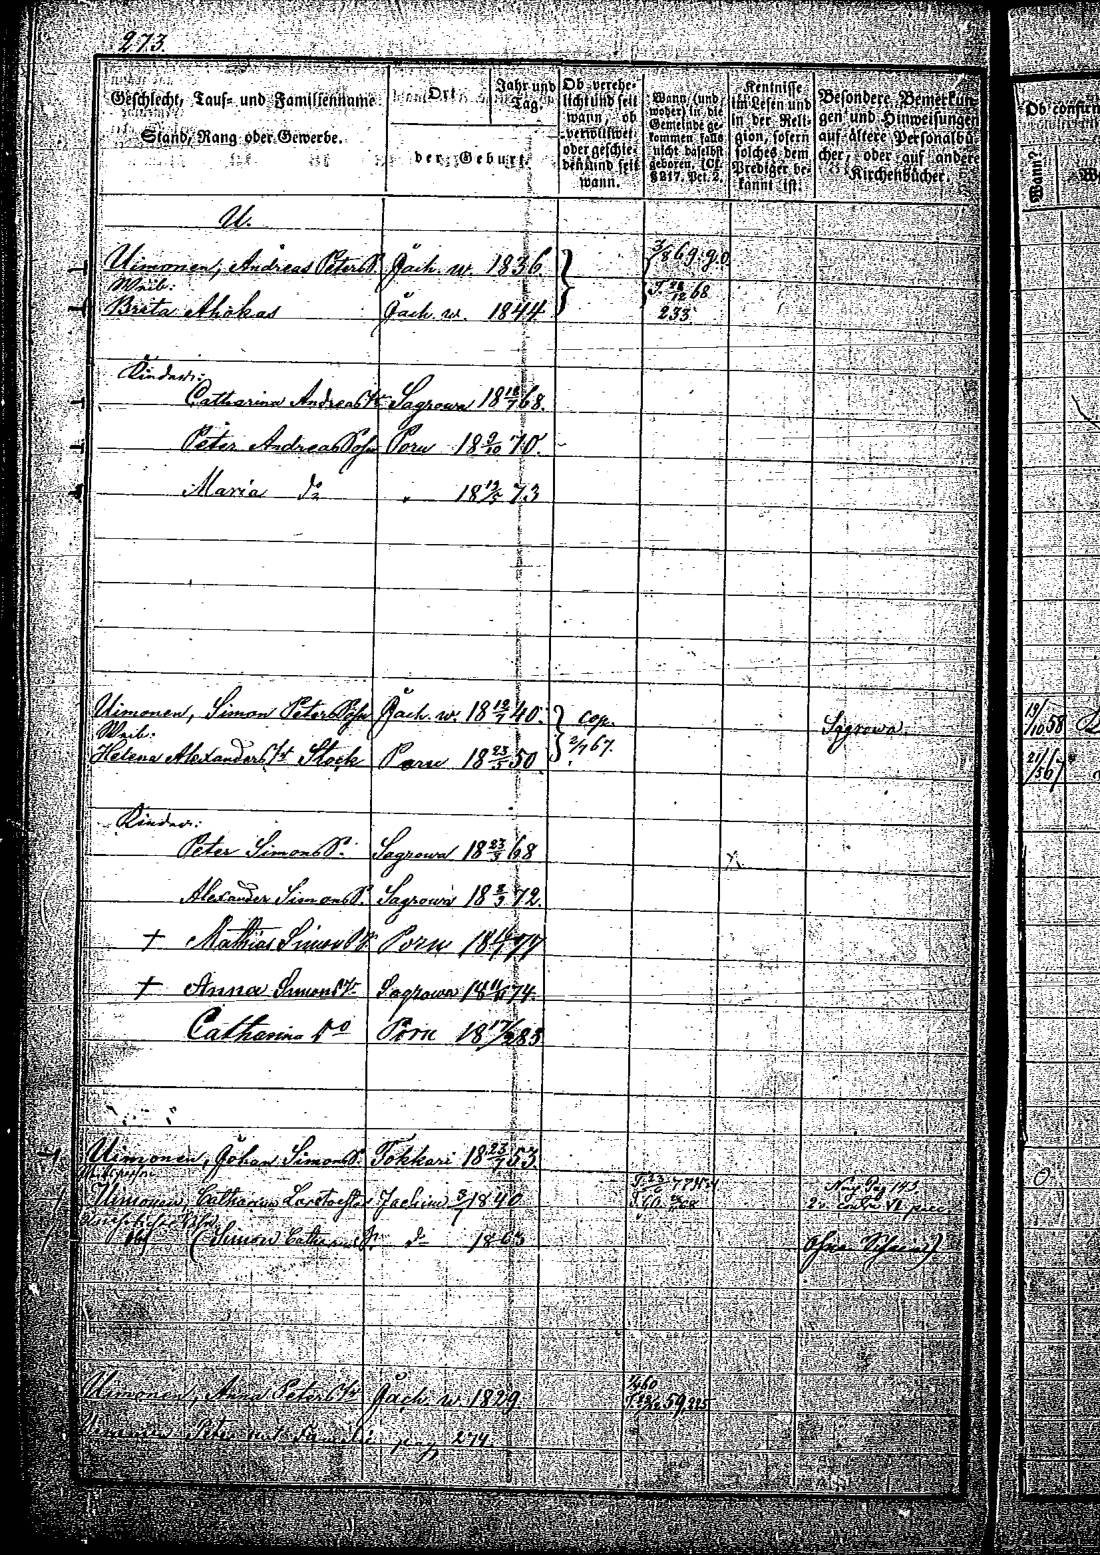 273.
Geschlecht, Tauf- und Familienname
Stand, Rang oder Gewerbe.
Ort
Jahr und Tag.
der Geburt.
Ob verehe-
licht und seit
wann, ob
verwittwet
oder geschie-
den und seit
wann.
Wann (und
woher) in die
Gemeinde ge-
kommen falls
nicht daselbst
geboren (Cf.
§217. Pct. 2.
Kentnisse
im Lesen und
in der Reli-
gion, sofern
solches dem
Prediger be-
kannt ist.
Besondere Bemerkun-
gen und Hinweisungen
auf ältere Personalbü-
cher, oder auf andere
Kirchenbücher.
Ob confirm
Wann?
U.
Uimonen, Andreas Peters S. Jäch. w. 1836 3/8 69. g.o.
Weib:
Brita Ahokas Jäch. w. 1844 12 68
233
Kinder:
Catharina Andreas Sagrowa 18 18/7 68.
Peter Andreas Sohn Poru 18 9/10 70.
Maria do " 18 12/5 73
Uimonen, Simon Peters Sohn Jäch. w. 18 12/7 40. cop. Sagrowa. 19/10 58
Weib:
Helena Alexanders Stock Poru 18 23/5 50 2/7 67. 21/5 67
Kinder:
Peter Simons S. Sagrowa 18 23/3 68
Alexander Simons S. Sagrowa 18 2/3 72.
† Mathias Simons S. Poru 18 77
† Anna Simons Sagrowa 18 74.
Catharina do Poru 18 17/2 83
Uimonen, Johan Simons S. Tokkari 18 23/7 53
Uimonen, Catharina Jachim 3/7 1840
(Simon do 1863 ohne Schein)
Uimonen, Anna Peters Jäch. w. 1829. 59, 225
Uimonen Peter und Familie pag 274.